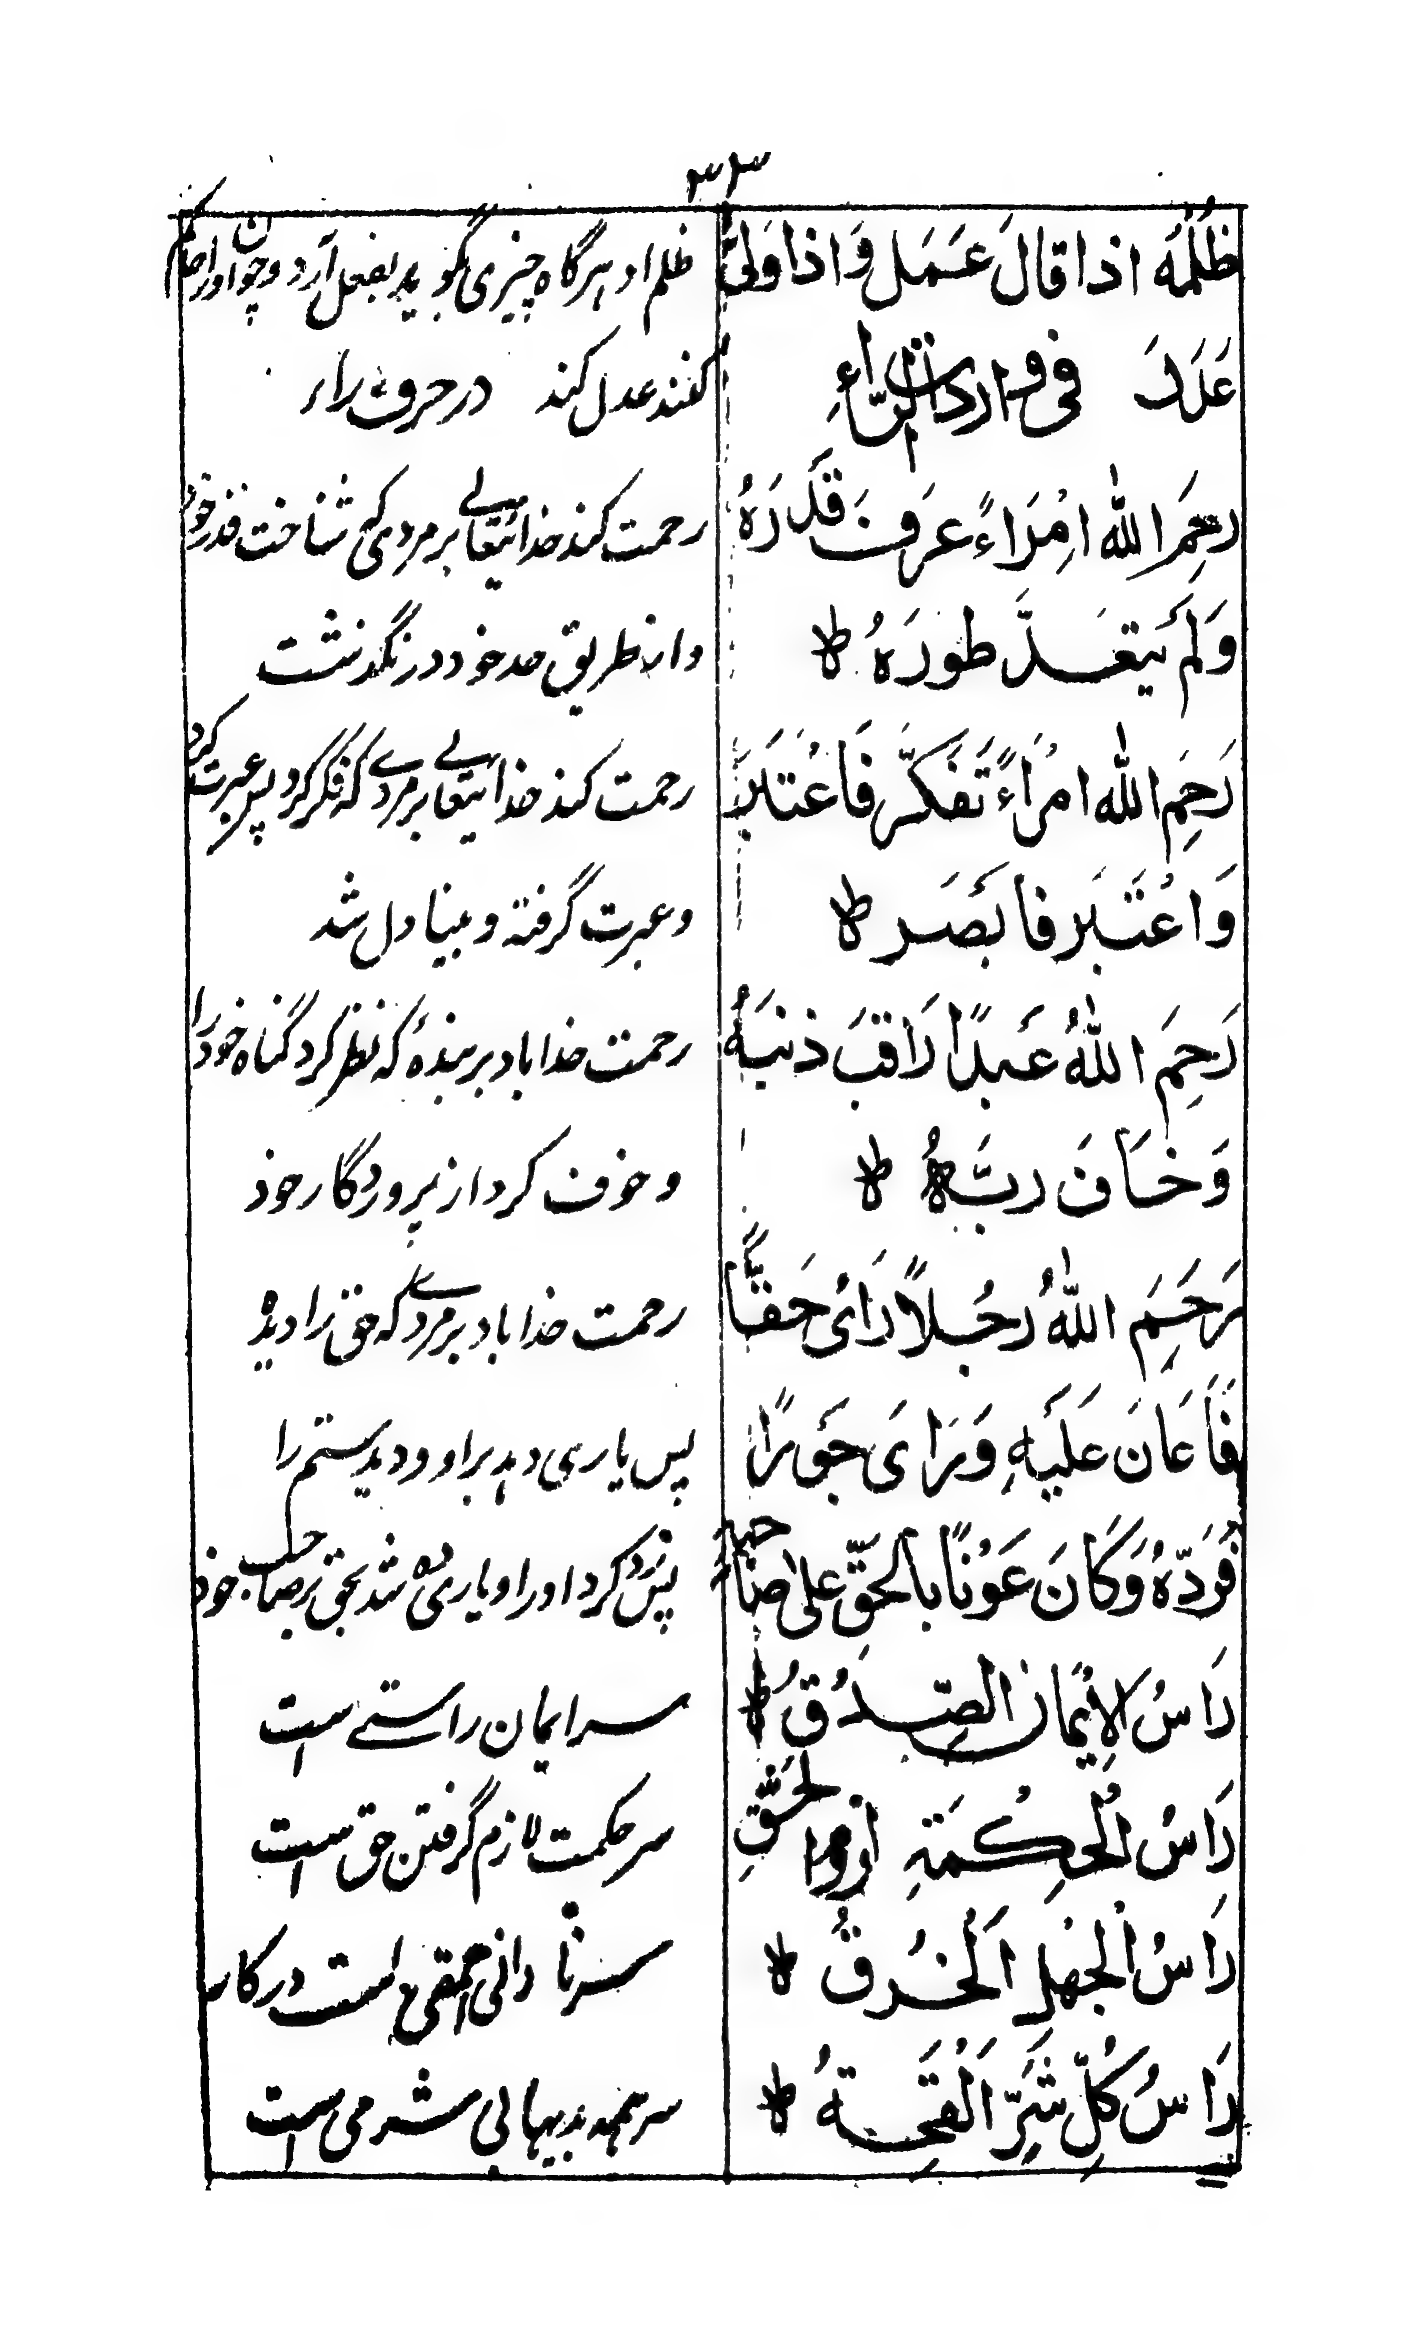 ٣٣
ظُلْمُهُ اذا قالَ عَمَل وَاذا وَلِىَّ
ظلم او هرگاه چیزی گوید بفعل آرد و چون او را حاکم
عَدَلَ فی واردات الرّاءِ
کنند عدل کند در حرف راء
رَحِمَ اللّه امْرَاءً عَرَفَ قَدرَهُ
رحمت کند خدائیتعالی بر مردی کی شناخت قدر خود
وَلَم یَتَعَدَّ طورَهُ ط
و از طریق حد خود در نگذشت
رَحِمَ اللّه امْرَاءً تَفَکَّر فَاعْتَبَرَ
رحمت کند خدائیتعالی بر مردے که فکر کرد پس عبرت کرد
وَاعْتَبَر فابَصَر ط
و عبرت گرفته و بینا دل شد
رَحِمَ اللّهُ عَبدًا رَاقَبَ ذنبَهُ
رحمت خدا باد بر بندهٔ که نظر کرد گناه خود را
وَخَافَ ربَّهُ ط
و خوف کرد از پروردگار خود
رَحِمَ اللّهُ رَجُلاً رَائ حَقًّا
رحمت خدا باد بر مردے که حق را دیده
فَاَعَانَ عَلَیَهِ وَرَایَ جَورًا
پس یاری دهد بر او و دید ستم را
فَرَدّهُ وَکَانَ عَوْنًا بالحَقِّ علیٰ صَاحبِه
پس رد کرد او را و یاری ده شد بحق بر صاحب خود
رَاسُ الاِیْمان الصِّدْقُ ط
سر ایمان راستے است
رَاسُ الْحِکْمَةِ لزوم الحَقِّ
سر حکمت لازم گرفتن حق است
رَاسُ الْجَهْلِ اَلْخُرقُ ط
سر نادانی احمقی است در کار
رَاسُ کُلِّ شَرِّ اَلْقَحِةُ ط
سر همه بدیها بی شرمی است